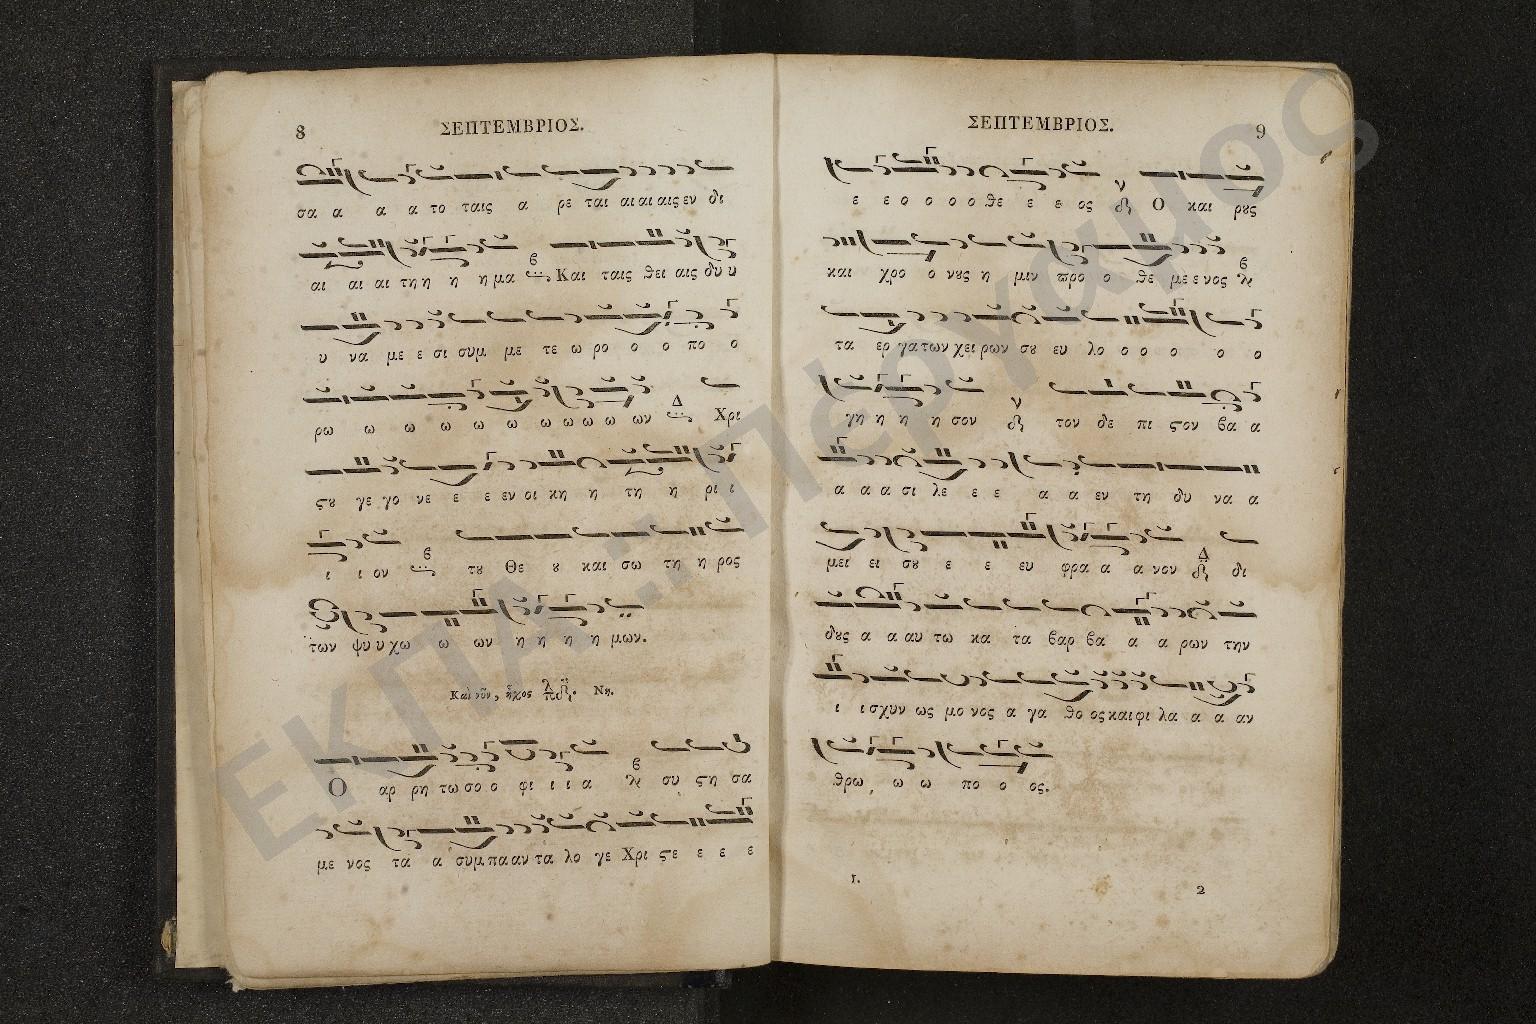 8 ΣΕΠΤΕΜΒΡΙΟΣ.
σα α α α το ταις α ρε ται αι αι αις εν δι
αι αι αι τη η η η μα Και ταις θει αις δυ υ
υ να με ε σι συμ με τε ω ρο ο ο πο ο
ρω ω ω ω ω ω ω ω ω ω ων Δ Χρι
ϛȣ γε γο νε ε ε εν οι κη η τη η ρι ι
ι ι ον τȣ Θε ȣ και σω τη η ρος
των ψυ υ χω ω ων η η η η μων.
Καὶ νῦν, ἦχος Νη.
Ο αρ ρη τω σο ο φι ι ι α συ ϛη σα
με νος τα α συμ πα αν τα λο γε Χρι ϛε ε ε ε
ΣΕΠΤΕΜΒΡΙΟΣ. 9
ε ε ο ο ο ο θε ε ε ος Ο και ρȣς
και χρο ο νȣς η μιν προ ο θε με ε νος
τα ερ γα των χει ρων σȣ ευ λο ο ο ο ο ο
γη η η η σον τον δε πι ϛον βα α
α α α σι λε ε ε α α εν τη δυ να α
μει ει σȣ ε ε ευ φρα α α νον Δ δι
δȣς α α αυ τω κα τα βαρ βα α α ρων την
ι ι σχυν ως μο νος α γα θο ος και φι λα α α αν
θρω ω ω πο ο ος.
1. 2
ΕΚΠΑ :: Πέργαμος